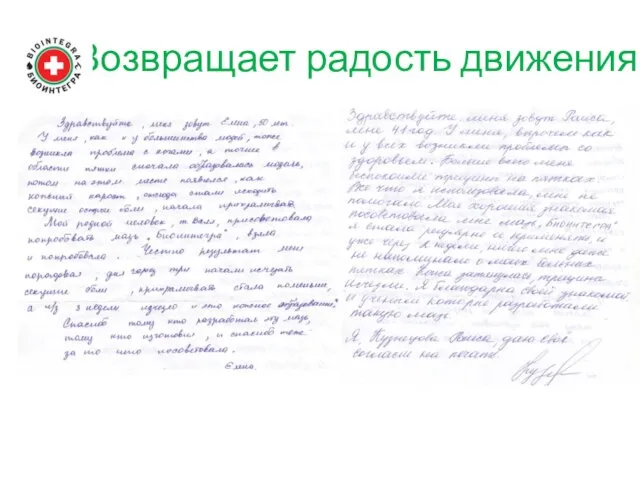 BIOINTEGRA
БИОИНТЕГРА
Возвращает радость движения
Здравствуйте, меня зовут Елена, 50 лет.
У меня, как и у большинства людей, тоже
возникла проблема с ногами, а точнее в
области пятки сначала образовалась мозоль,
потом на этом месте появился, как
кожный нарост, отсюда стали исходить
секущие острые боли, начала прихрамывать
Мой родной человек, т. Валя, присоветовала
попробовать мазь "Биоинтегра", взяла
и попробовала. Честно результат меня
порадовал, дня через три начали исчезать
секущие боли, прихрамывать стала поменьше,
а ч/з 3 недели исчезло и это кожное образование.
Спасибо тому кто разработал эту мазь,
тому кто изготовил, и спасибо тёте
за то что посоветовала.
Елена.
Здравствуйте меня зовут Раиса,
мне 41 год. У меня, впрочем как
и у всех возникли проблемы со
здоровьем. Больше всего меня
беспокоили трещины на пятках
Все что я использовала, мне не
помогало. Моя хорошая знакомая
посоветовала мне мазь "Биоинтегра"
я стала регулярно её применять, и
уже через 2 недели, ничего мне даже
не напоминало о моих больных
пятках. Кожа затянулась, трещины
исчезли. Я благодарна своей знакомой
и ученым которые разработали
такую мазь.
Я, Кузнецова Раиса, даю свое
согласие на печать